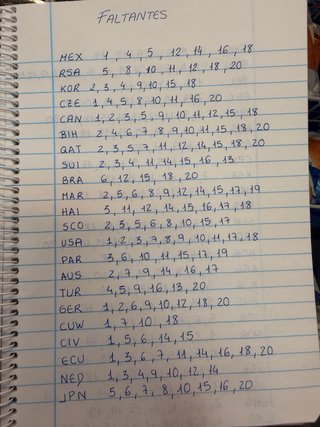 FALTANTES
MEX 1, 4, 5, 12, 14, 16, 18
RSA 5, 8, 10, 11, 12, 18, 20
KOR 2, 3, 4, 9, 10, 15, 18
CZE 1, 4, 5, 8, 10, 11, 16, 20
CAN 1, 2, 3, 5, 9, 10, 11, 12, 15, 18
BIH 2, 4, 6, 7, 8, 9, 10, 11, 15, 18, 20
QAT 2, 3, 5, 7, 11, 12, 14, 15, 18, 20
SUI 2, 3, 4, 11, 14, 15, 16, 13
BRA 6, 12, 15, 18, 20
MAR 2, 5, 6, 8, 9, 12, 14, 15, 17, 19
HAI 3, 11, 12, 14, 15, 16, 17, 18
SCO 2, 3, 5, 6, 8, 10, 15, 17
USA 1, 2, 3, 7, 8, 9, 10, 11, 17, 18
PAR 3, 6, 10, 11, 15, 17, 19
AUS 2, 7, 9, 14, 16, 17
TUR 4, 5, 9, 16, 13, 20
GER 1, 2, 6, 9, 10, 12, 18, 20
CUW 1, 7, 10, 18
CIV 1, 5, 6, 14, 15
ECU 1, 3, 6, 7, 11, 14, 16, 18, 20
NED 1, 3, 4, 9, 10, 12, 14
JPN 5, 6, 7, 8, 10, 15, 16, 20